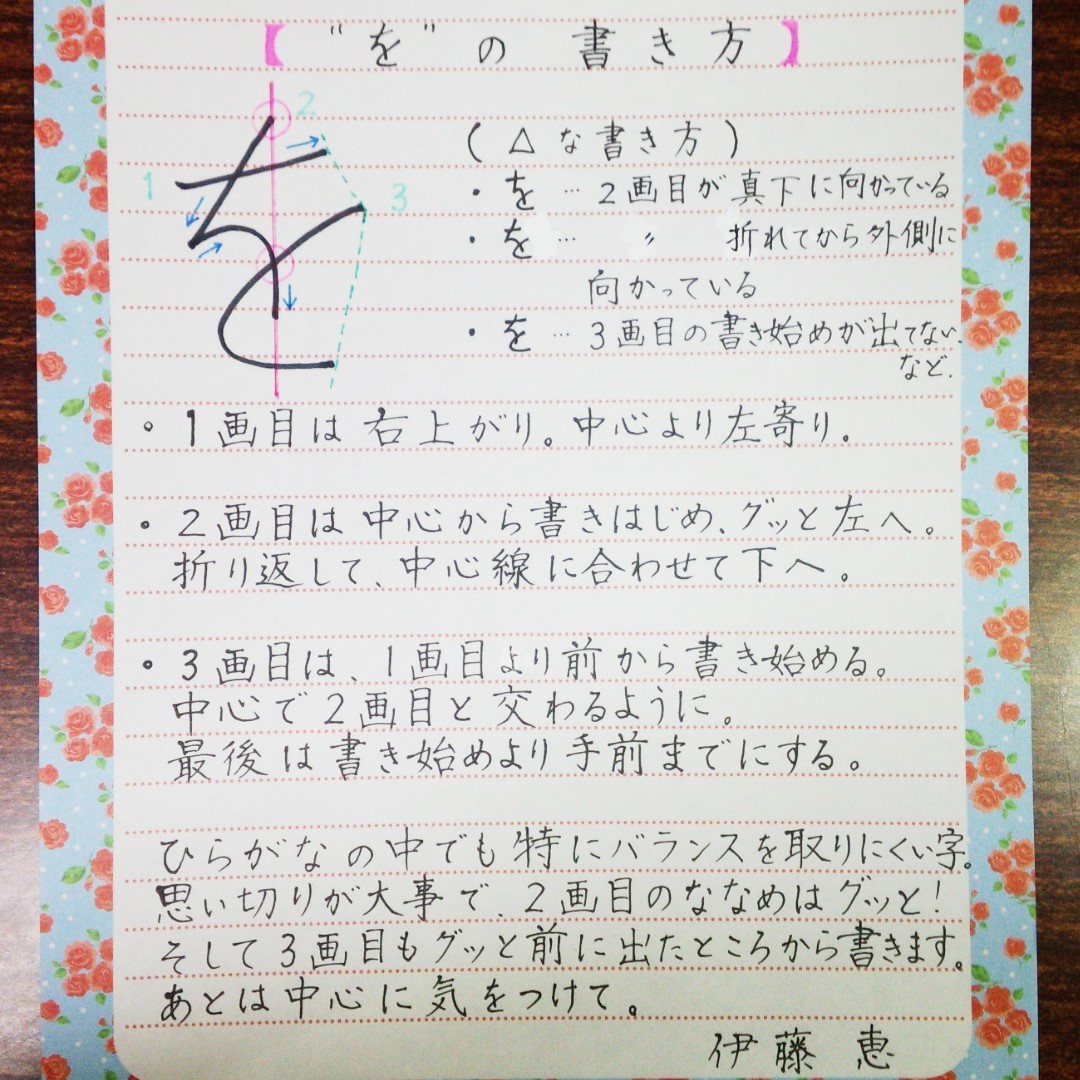 【"を"の書き方】
2
1
3
(△な書き方)
・を…2画目が真下に向かっている
・を… 〃 折れてから外側に
向かっている
・を…3画目の書き始めが出てない、
など.
。1画目は右上がり。中心より左寄り.
・2画目は中心から書きはじめ、グッと左へ。
折り返して、中心線に合わせて下へ。
・3画目は、1画目より前から書き始める。
中心で2画目と交わるように。
最後は書き始めより手前までにする。
ひらがなの中でも特にバランスを取りにくい字。
思い切りが大事で、2画目のななめはグッと!
そして3画目もグッと前に出たところから書きます。
あとは中心に気をつけて。
伊藤 恵
を